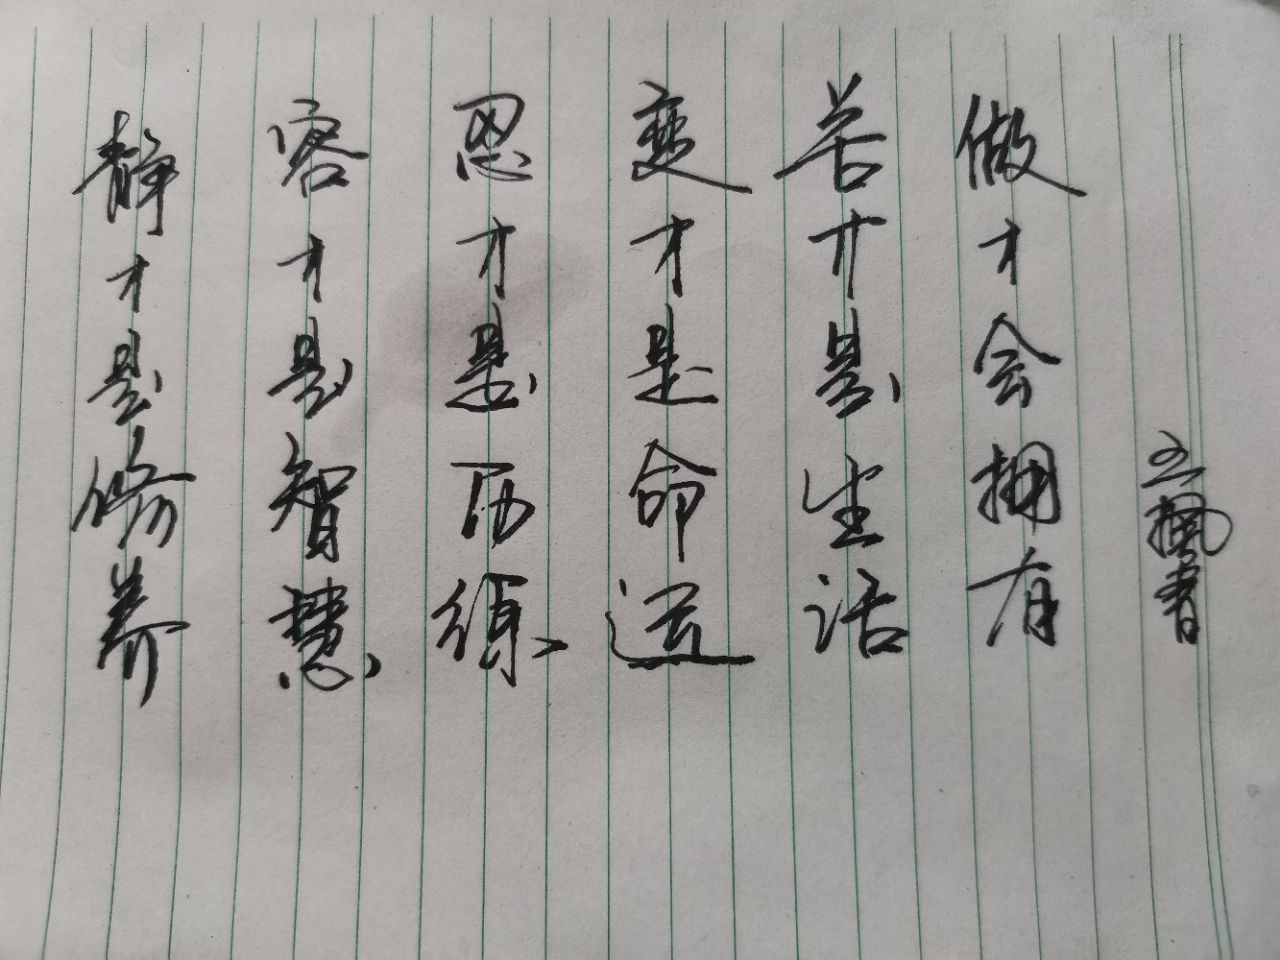 做才会拥有
苦才是生活
变才是命运
忍才是历练
容才是智慧
静才是修养